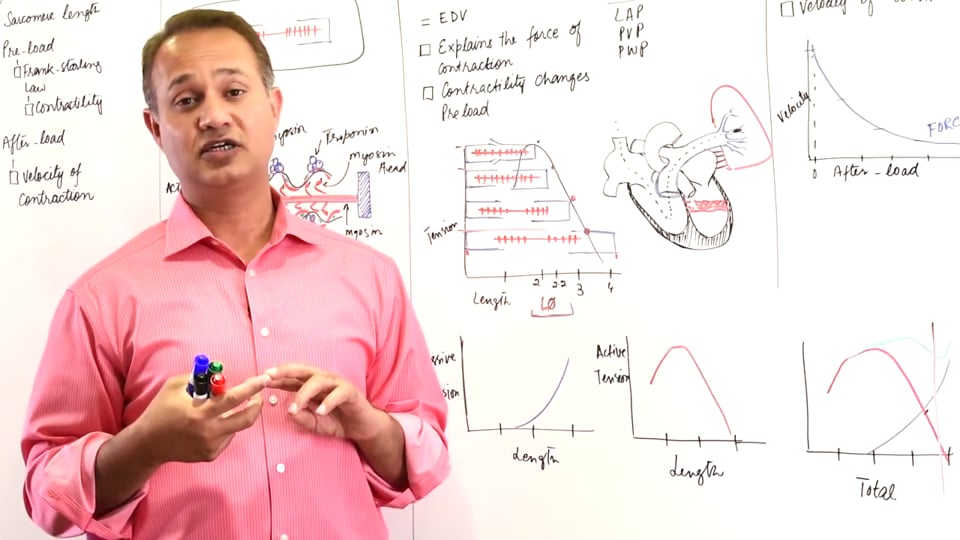 Sarcomere length
Pre-load
Frank-starling
Law
Contractility
After-load
Velocity of
contraction
Troponin
myosin
Head
myosin
= EDV
Explains the force of
contraction
Contractility changes
Preload
LAP
PVP
PWP
Tension
2 2.2 3 4
Length
Velocity
FORC
0
After-load
Length
Active
Tension
Length
Total